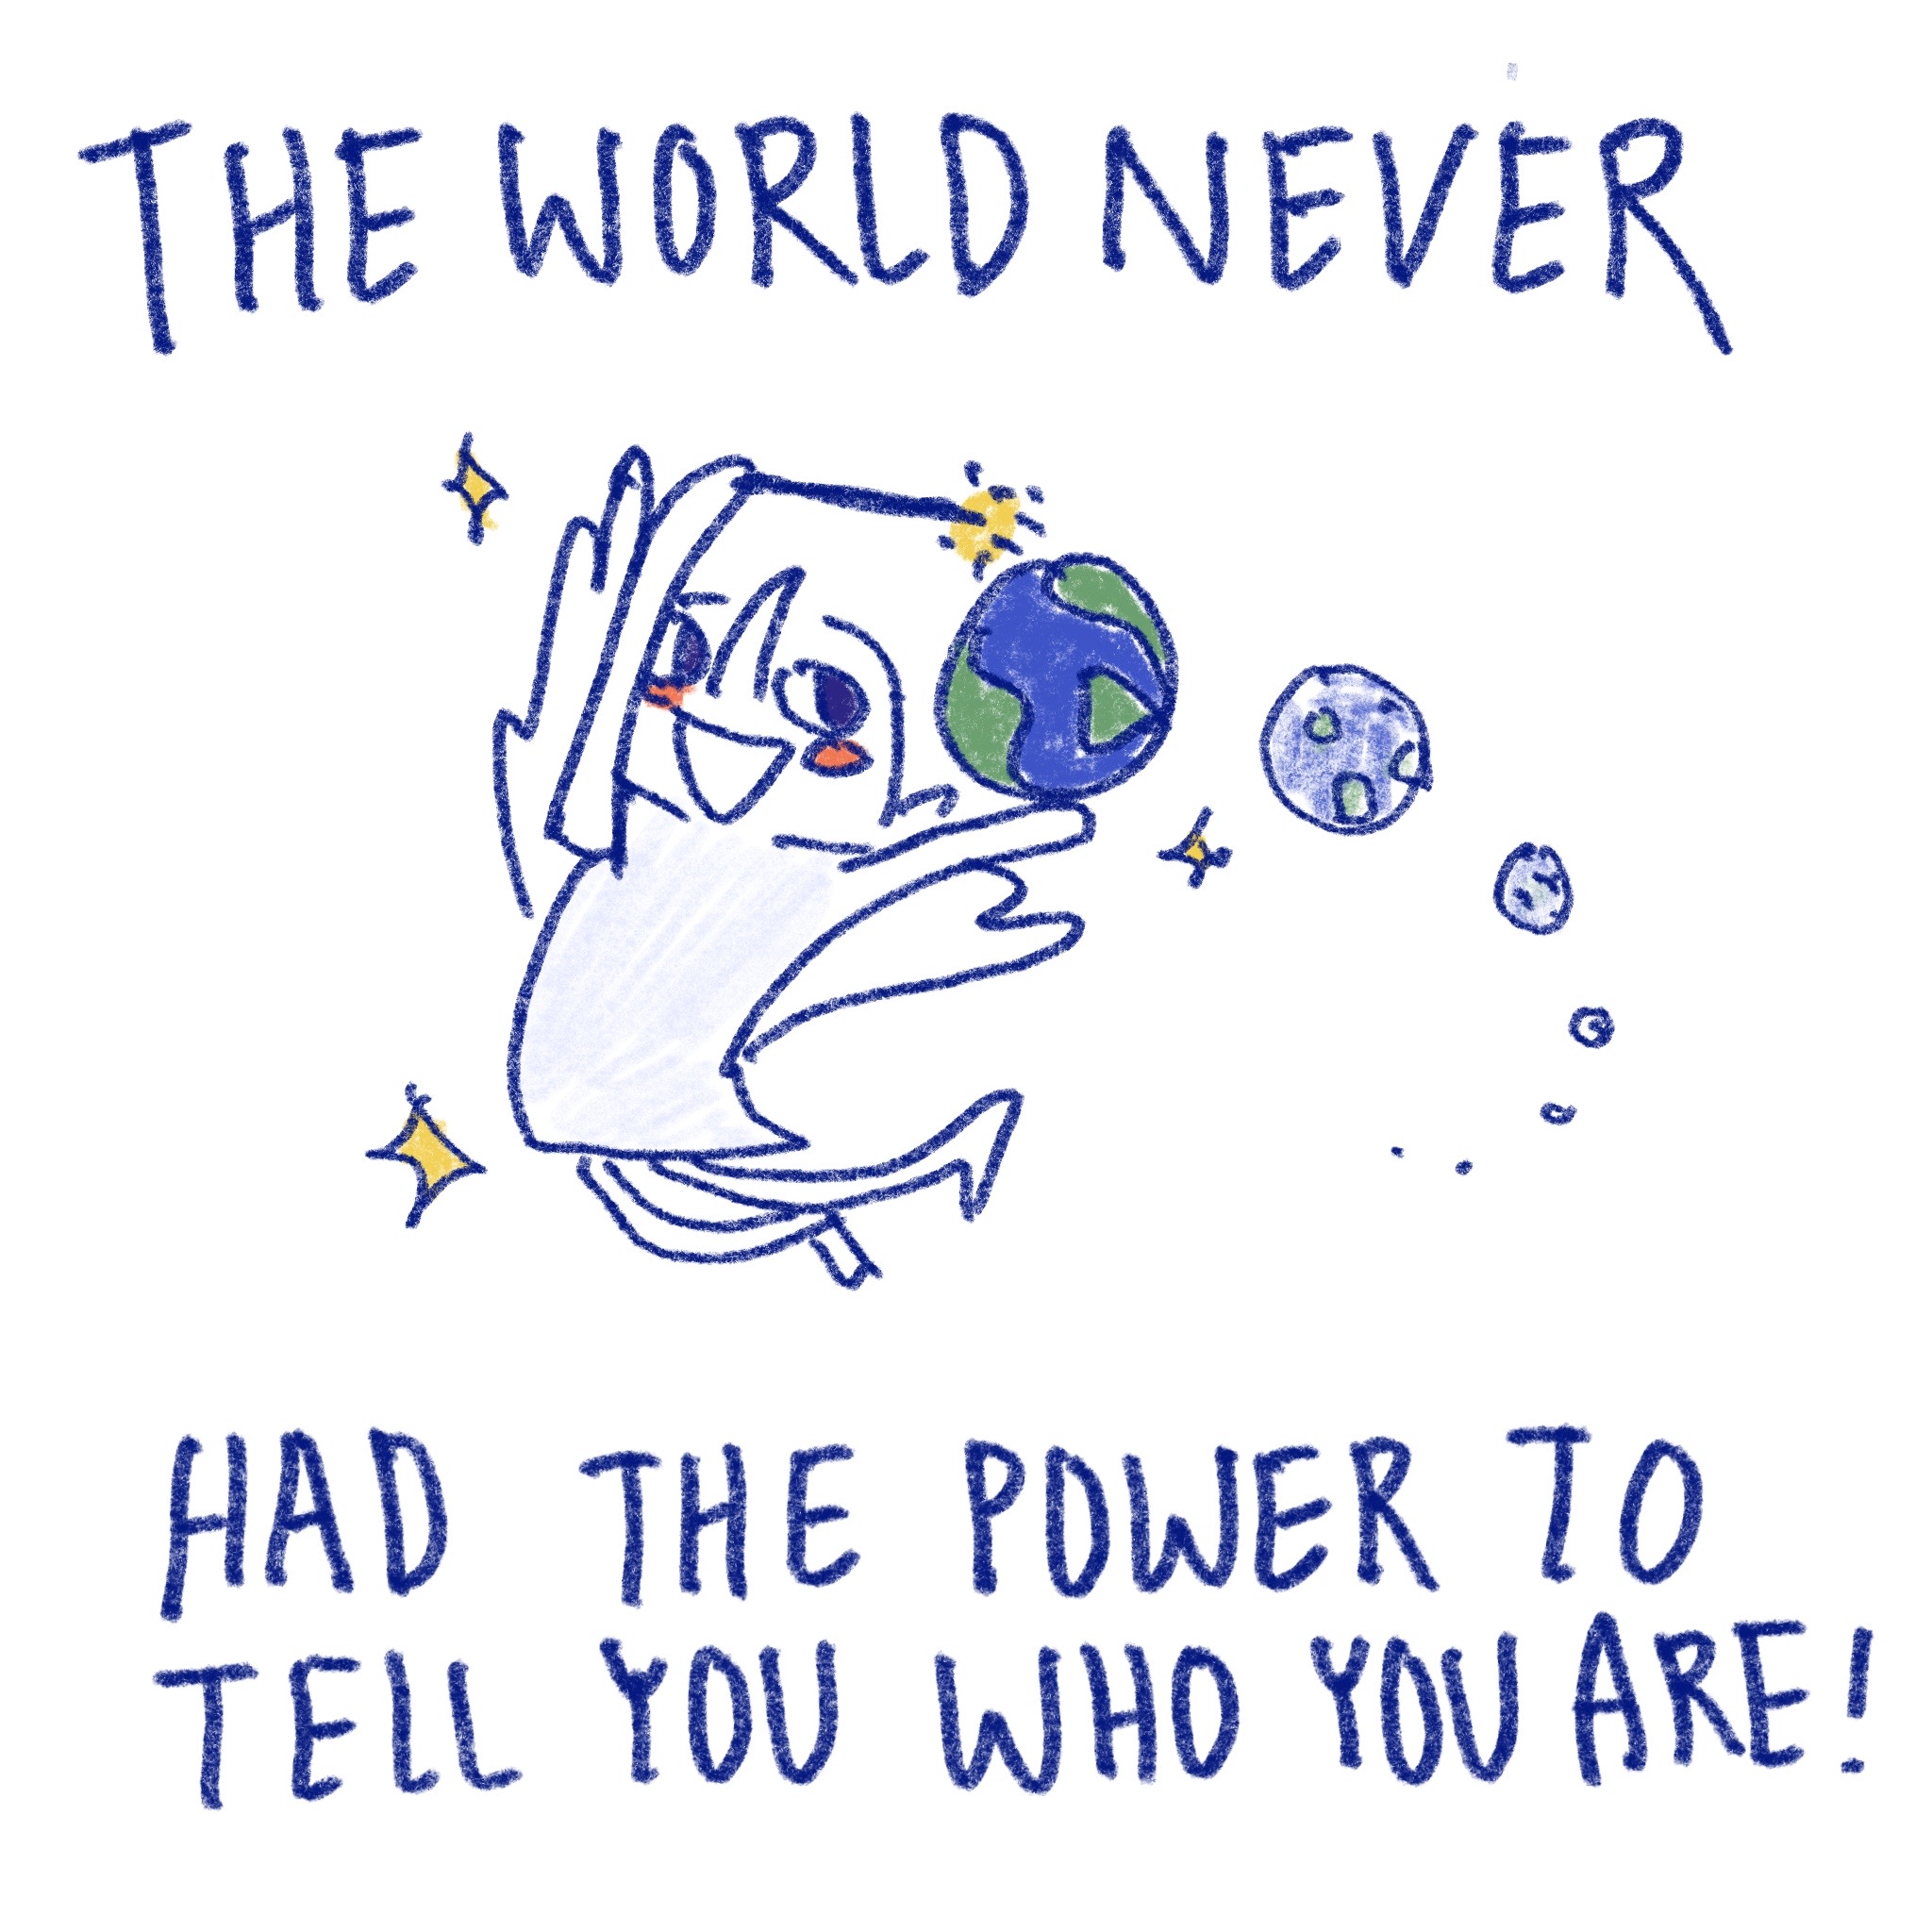 THE WORLD NEVER
HAD THE POWER TO
TELL YOU WHO YOU ARE!